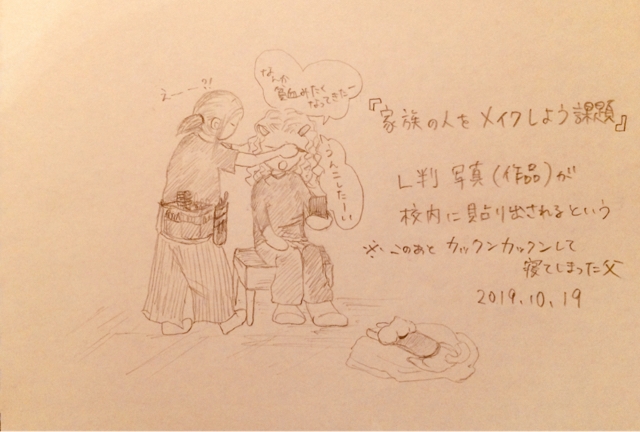 なんか
貧血みたく
なってきたー
えーーー?!
うんこしたーい
『家族の人をメイクしよう課題』
L判 写真(作品)が
校内に貼り出されるという
※このあと カックンカックンして
寝てしまった父
2019.10.19